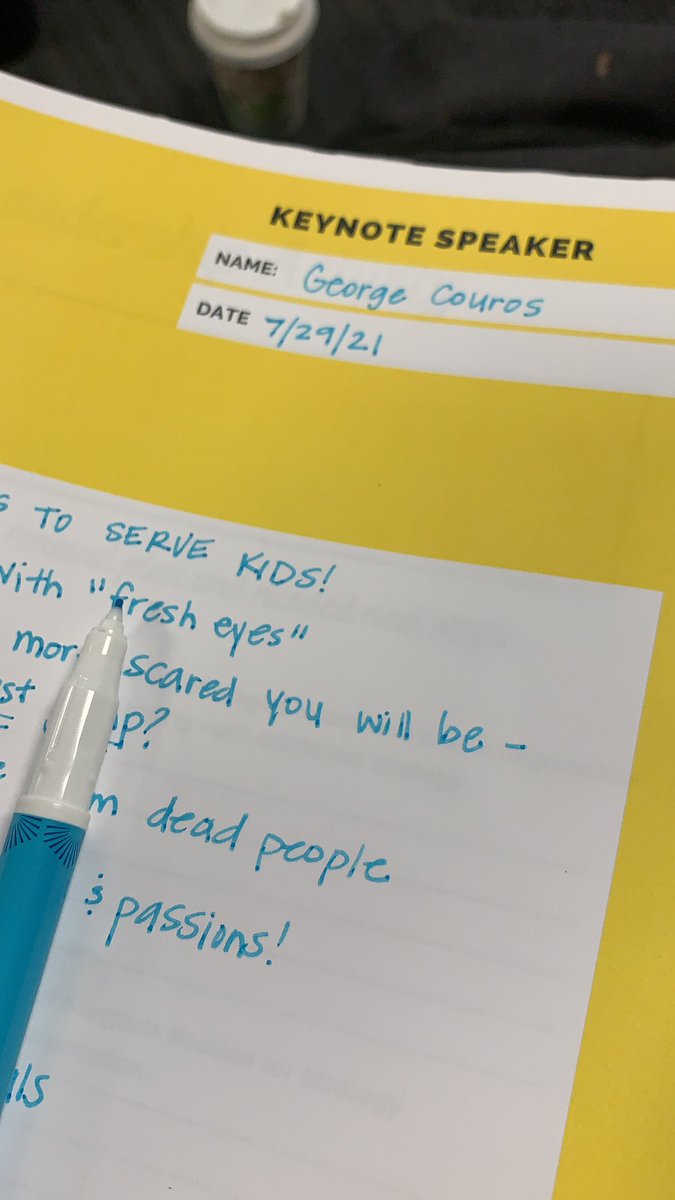 KEYNOTE SPEAKER
NAME: George Couros
DATE 7/29/21
TO SERVE KIDS!
with "fresh eyes"
scared you will be -
dead people
& passions!